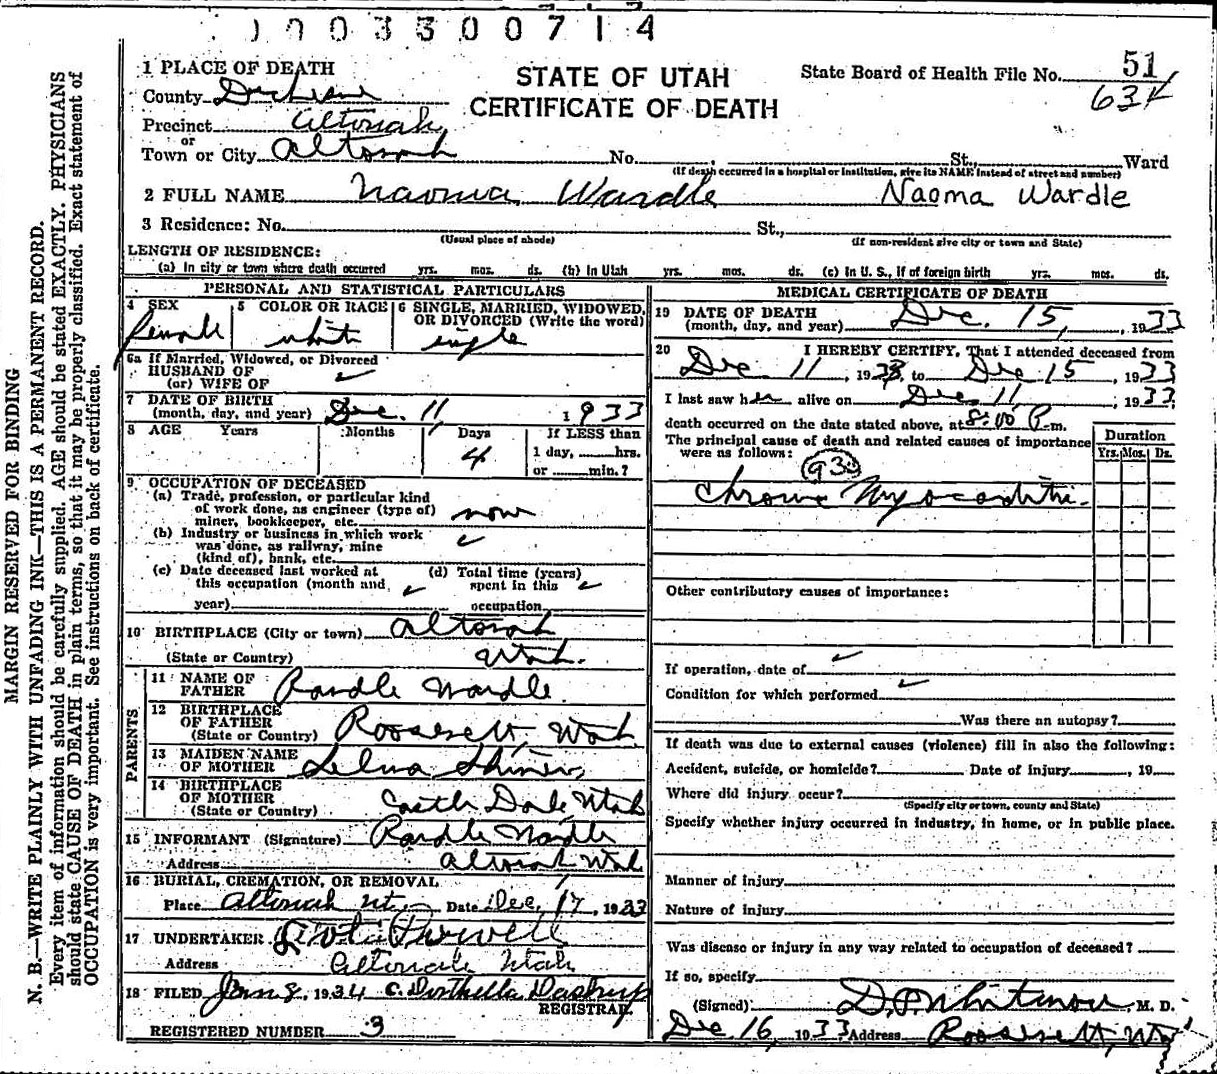 1003300714
STATE OF UTAH
CERTIFICATE OF DEATH
State Board of Health File No. 51
634
1 PLACE OF DEATH
County Duchesne
Precinct Altonah
or
Town or City Altonah No. St., Ward
(If death occurred in a hospital or institution, give its NAME instead of street and number)
2 FULL NAME Naoma Wardle Naoma Wardle
3 Residence: No. St.,
(Usual place of abode) (If non-resident give city or town and State)
LENGTH OF RESIDENCE:
(a) In city or town where death occurred yrs. mos. ds. (b) In Utah yrs. mos. ds. (c) In U. S., if of foreign birth yrs. mos. ds.
PERSONAL AND STATISTICAL PARTICULARS
4 SEX
Female
5 COLOR OR RACE
white
6 SINGLE, MARRIED, WIDOWED,
OR DIVORCED (Write the word)
single
6a If Married, Widowed, or Divorced
HUSBAND OF
(or) WIFE OF ✓
7 DATE OF BIRTH
(month, day, and year) Dec. 11, 1933
8 AGE Years Months Days If LESS than
4 1 day, hrs.
or min.?
9 OCCUPATION OF DECEASED
(a) Trade, profession, or particular kind
of work done, as engineer (type of)
miner, bookkeeper, etc. none
(b) Industry or business in which work
was done, as railway, mine
(kind of), bank, etc. ✓
(c) Date deceased last worked at
this occupation (month and
year) ✓
(d) Total time (years)
spent in this
occupation ✓
10 BIRTHPLACE (City or town) Altonah
(State or Country) Utah.
PARENTS
11 NAME OF
FATHER Randle Wardle
12 BIRTHPLACE
OF FATHER
(State or Country) Roosevelt, Utah
13 MAIDEN NAME
OF MOTHER Selma
14 BIRTHPLACE
OF MOTHER
(State or Country) Castle Dale Utah
15 INFORMANT (Signature) Randle Wardle
Address Altonah Utah
16 BURIAL, CREMATION, OR REMOVAL
Place Altonah Ut. Date Dec. 17, 1933
17 UNDERTAKER
Address Altonah Utah
18 FILED Jan 8, 1934 C. Dastrup
REGISTRAR
REGISTERED NUMBER 3
MEDICAL CERTIFICATE OF DEATH
19 DATE OF DEATH
(month, day, and year) Dec. 15, 1933
20 I HEREBY CERTIFY, That I attended deceased from
Dec 11, 1933, to Dec 15, 1933
I last saw her alive on Dec. 11, 1933
death occurred on the date stated above, at 8:00 P.m.
The principal cause of death and related causes of importance
were as follows:
Duration
Yrs. Mos. Ds.
93
Chronic Myocarditis
Other contributory causes of importance:
If operation, date of ✓
Condition for which performed ✓
Was there an autopsy?
If death was due to external causes (violence) fill in also the following:
Accident, suicide, or homicide? Date of Injury , 19
Where did injury occur?
(Specify city or town, county and State)
Specify whether injury occurred in industry, in home, or in public place.
Manner of injury
Nature of injury
Was disease or injury in any way related to occupation of deceased?
If so, specify
(Signed) Whitmore, M. D.
Dec 16, 1933 Address Roosevelt, Utah
MARGIN RESERVED FOR BINDING
N. B.—WRITE PLAINLY WITH UNFADING INK—THIS IS A PERMANENT RECORD.
Every item of information should be carefully supplied. AGE should be stated EXACTLY. PHYSICIANS
should state CAUSE OF DEATH in plain terms, so that it may be properly classified. Exact statement of
OCCUPATION is very important. See instructions on back of certificate.